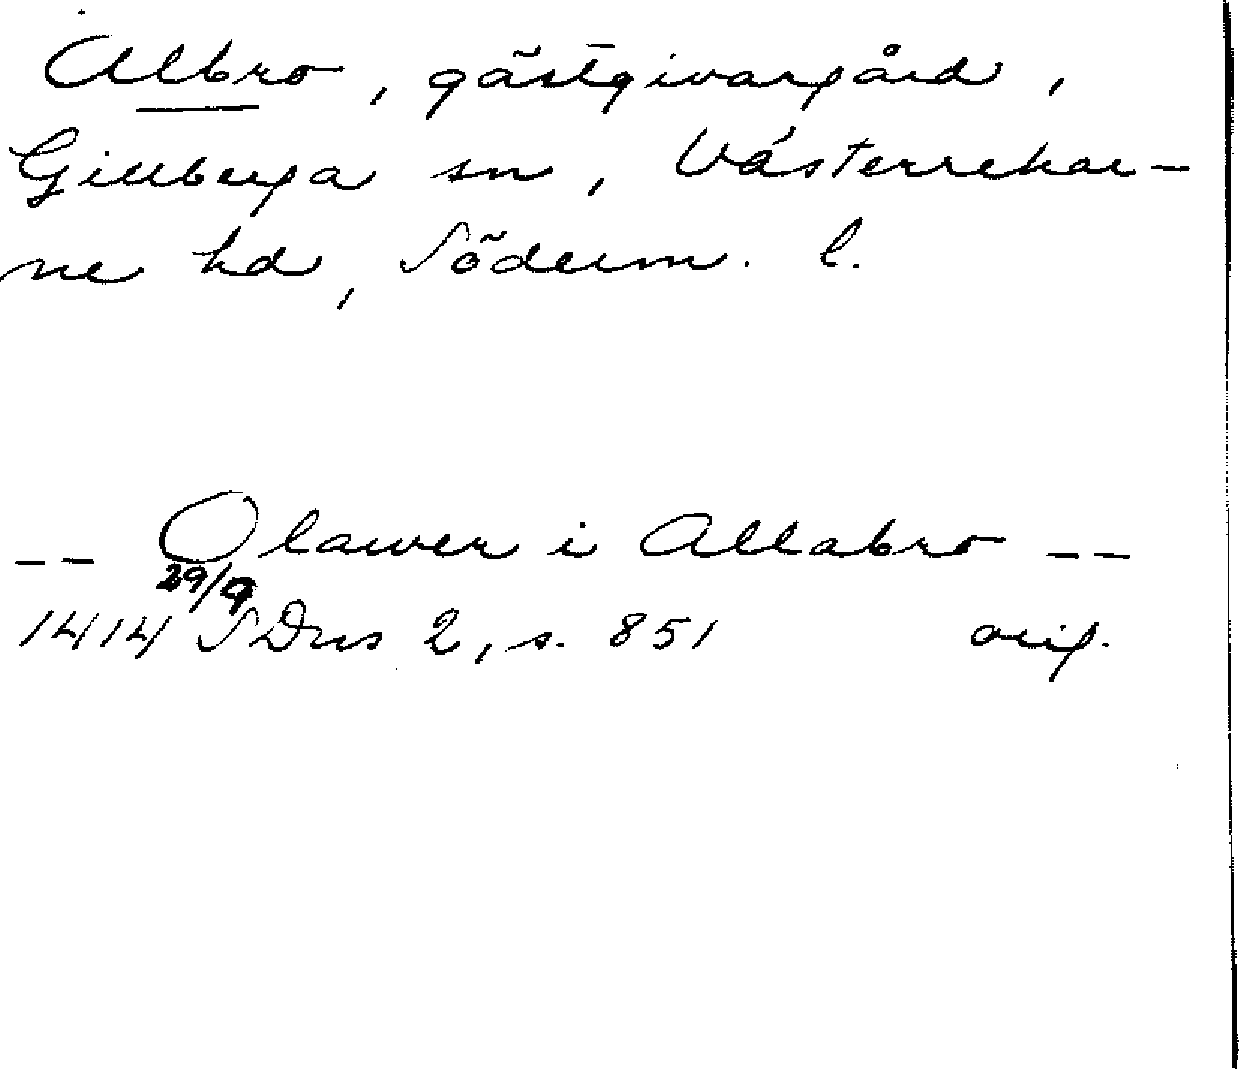 Albro, gästgivargård,
Gillberga sn, Västerrekar-
ne hd, Söderm. l.
-- Olawer i Allabro --
29/9
1414 SDns 2, s. 851 orig.